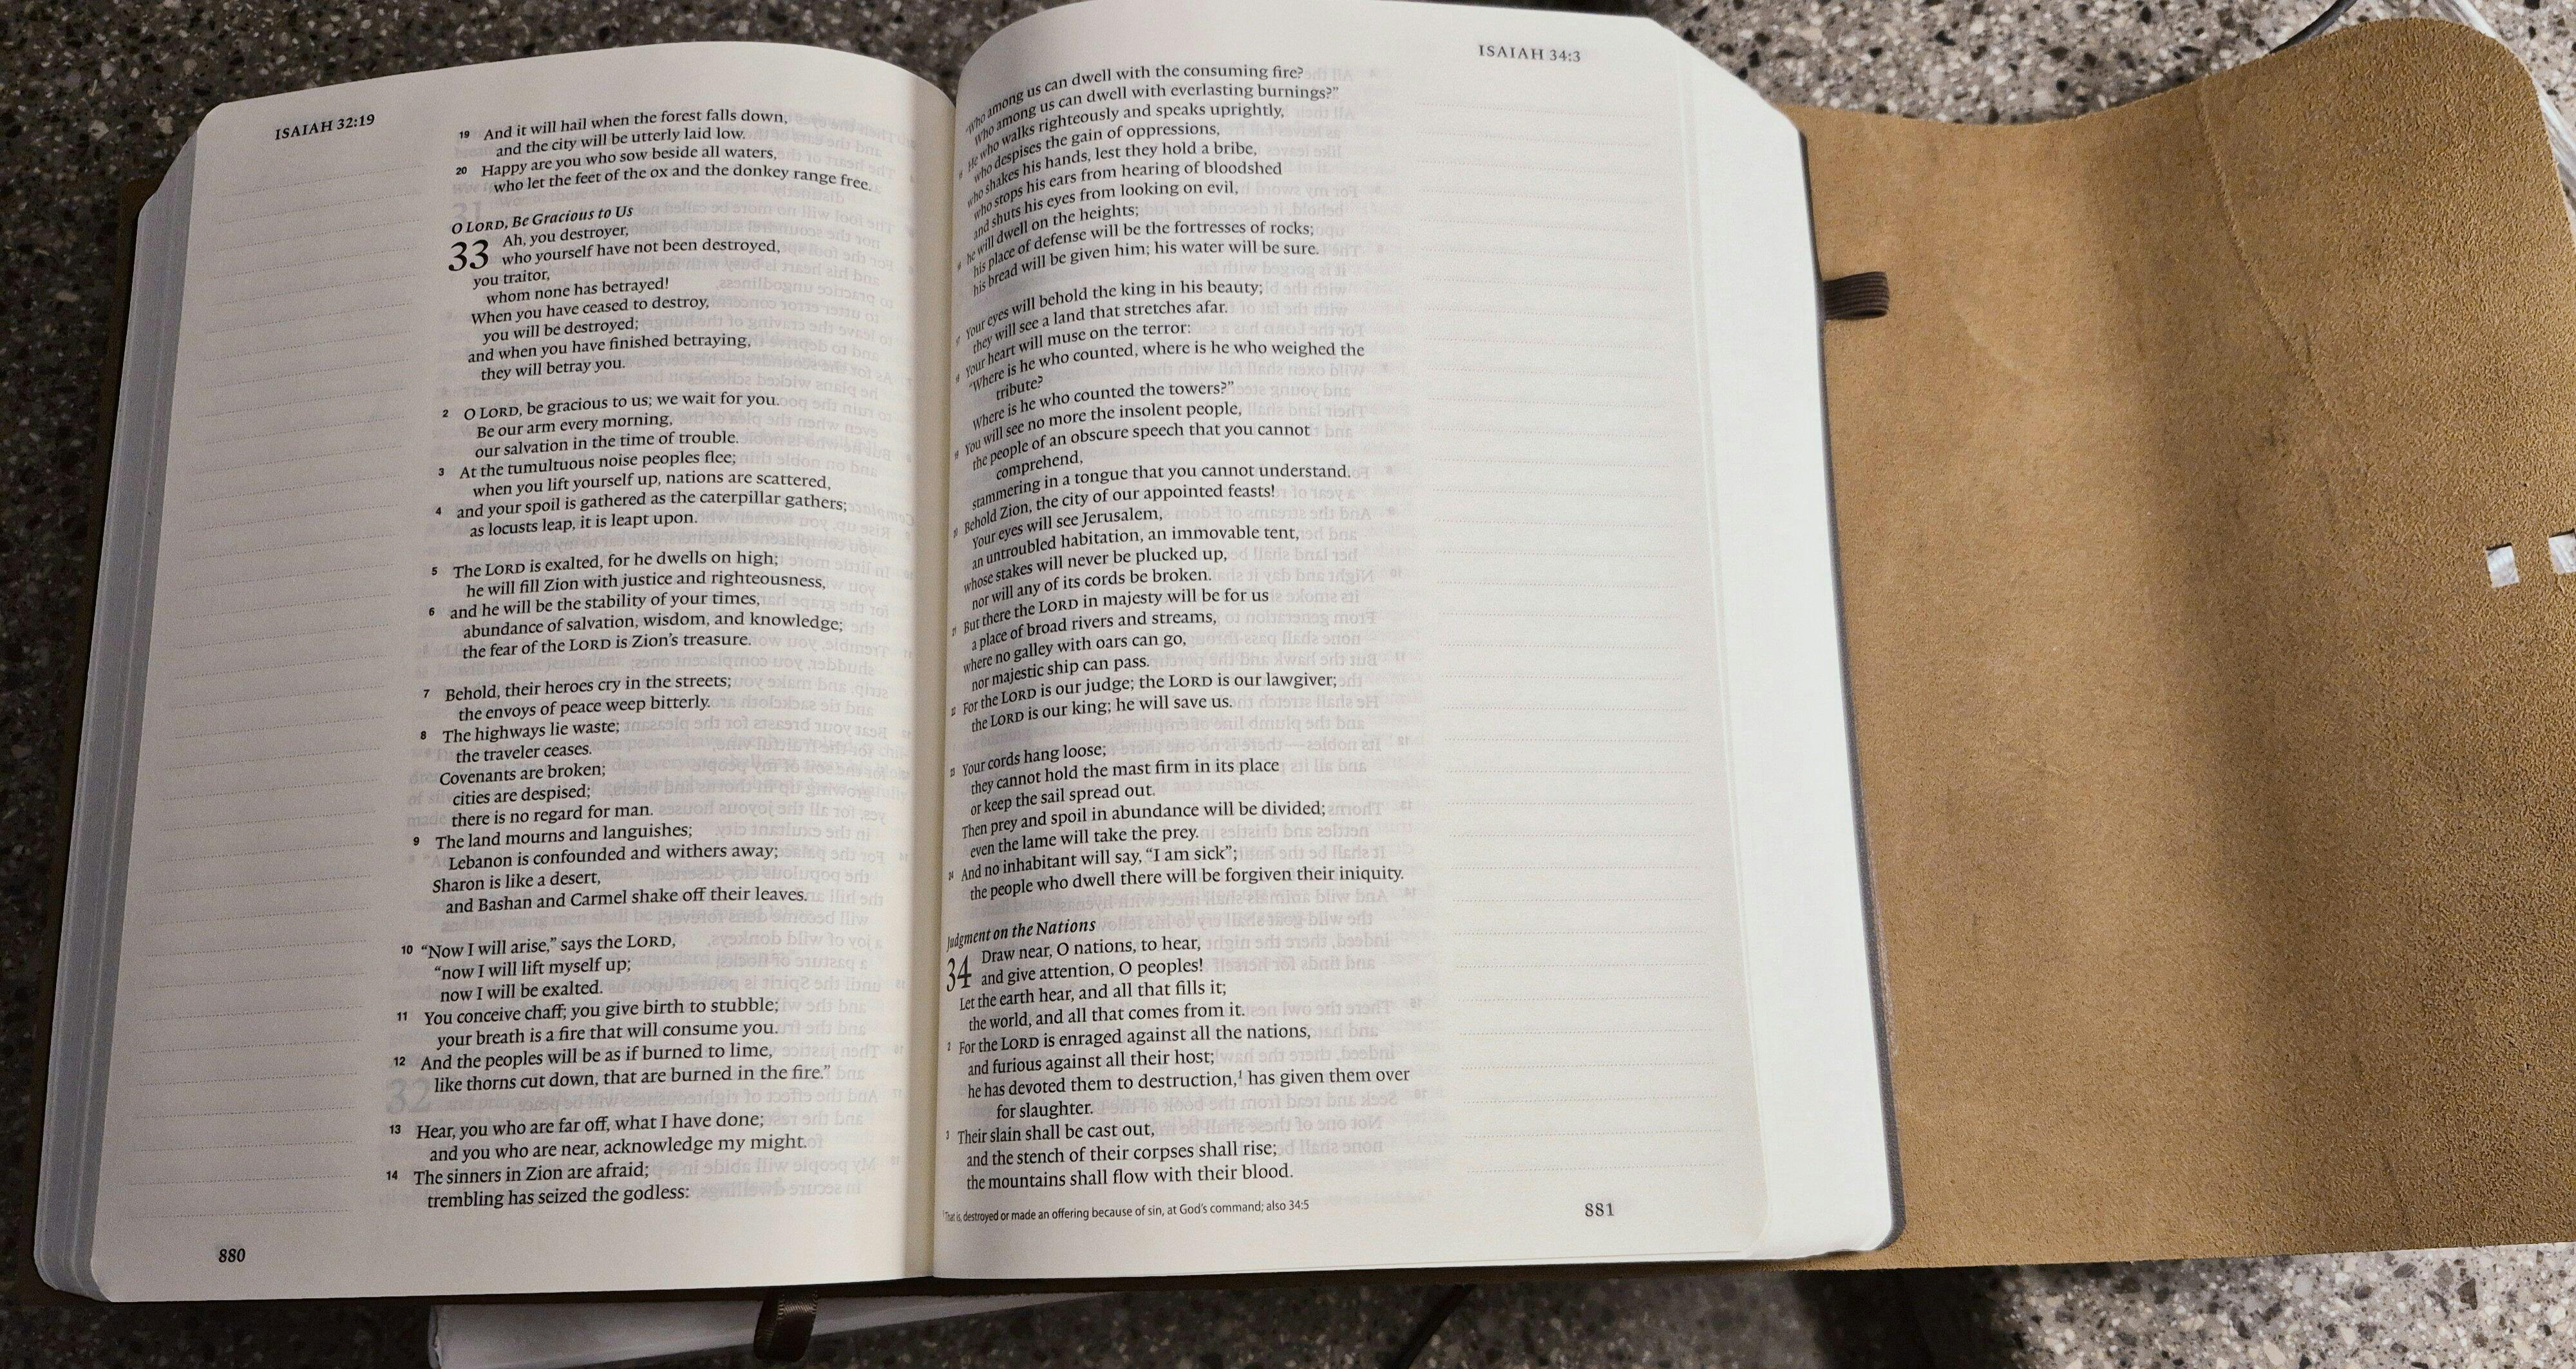 ISAIAH 32:19
19 And it will hail when the forest falls down,
and the city will be utterly laid low.
20 Happy are you who sow beside all waters,
who let the feet of the ox and the donkey range free.
O LORD, Be Gracious to Us
33 Ah, you destroyer,
who yourself have not been destroyed,
you traitor,
whom none has betrayed!
When you have ceased to destroy,
you will be destroyed;
and when you have finished betraying,
they will betray you.
2 O LORD, be gracious to us; we wait for you.
Be our arm every morning,
our salvation in the time of trouble.
3 At the tumultuous noise peoples flee;
when you lift yourself up, nations are scattered,
4 and your spoil is gathered as the caterpillar gathers;
as locusts leap, it is leapt upon.
5 The LORD is exalted, for he dwells on high;
he will fill Zion with justice and righteousness,
6 and he will be the stability of your times,
abundance of salvation, wisdom, and knowledge;
the fear of the LORD is Zion's treasure.
7 Behold, their heroes cry in the streets;
the envoys of peace weep bitterly.
8 The highways lie waste;
the traveler ceases.
Covenants are broken;
cities are despised;
there is no regard for man.
9 The land mourns and languishes;
Lebanon is confounded and withers away;
Sharon is like a desert,
and Bashan and Carmel shake off their leaves.
10 “Now I will arise,” says the LORD,
“now I will lift myself up;
now I will be exalted.
11 You conceive chaff; you give birth to stubble;
your breath is a fire that will consume you.
12 And the peoples will be as if burned to lime,
like thorns cut down, that are burned in the fire.”
13 Hear, you who are far off, what I have done;
and you who are near, acknowledge my might.
14 The sinners in Zion are afraid;
trembling has seized the godless:
880
ISAIAH 34:3
“Who among us can dwell with the consuming fire?
Who among us can dwell with everlasting burnings?”
15 He who walks righteously and speaks uprightly,
who despises the gain of oppressions,
who shakes his hands, lest they hold a bribe,
who stops his ears from hearing of bloodshed
and shuts his eyes from looking on evil,
16 he will dwell on the heights;
his place of defense will be the fortresses of rocks;
his bread will be given him; his water will be sure.
17 Your eyes will behold the king in his beauty;
they will see a land that stretches afar.
18 Your heart will muse on the terror:
“Where is he who counted, where is he who weighed the
tribute?
Where is he who counted the towers?”
19 You will see no more the insolent people,
the people of an obscure speech that you cannot
comprehend,
stammering in a tongue that you cannot understand.
20 Behold Zion, the city of our appointed feasts!
Your eyes will see Jerusalem,
an untroubled habitation, an immovable tent,
whose stakes will never be plucked up,
nor will any of its cords be broken.
21 But there the LORD in majesty will be for us
a place of broad rivers and streams,
where no galley with oars can go,
nor majestic ship can pass.
22 For the LORD is our judge; the LORD is our lawgiver;
the LORD is our king; he will save us.
23 Your cords hang loose;
they cannot hold the mast firm in its place
or keep the sail spread out.
Then prey and spoil in abundance will be divided;
even the lame will take the prey.
24 And no inhabitant will say, “I am sick”;
the people who dwell there will be forgiven their iniquity.
Judgment on the Nations
34 Draw near, O nations, to hear,
and give attention, O peoples!
Let the earth hear, and all that fills it;
the world, and all that comes from it.
2 For the LORD is enraged against all the nations,
and furious against all their host;
he has devoted them to destruction,1 has given them over
for slaughter.
3 Their slain shall be cast out,
and the stench of their corpses shall rise;
the mountains shall flow with their blood.
1 That is, destroyed or made an offering because of sin, at God's command; also 34:5
881